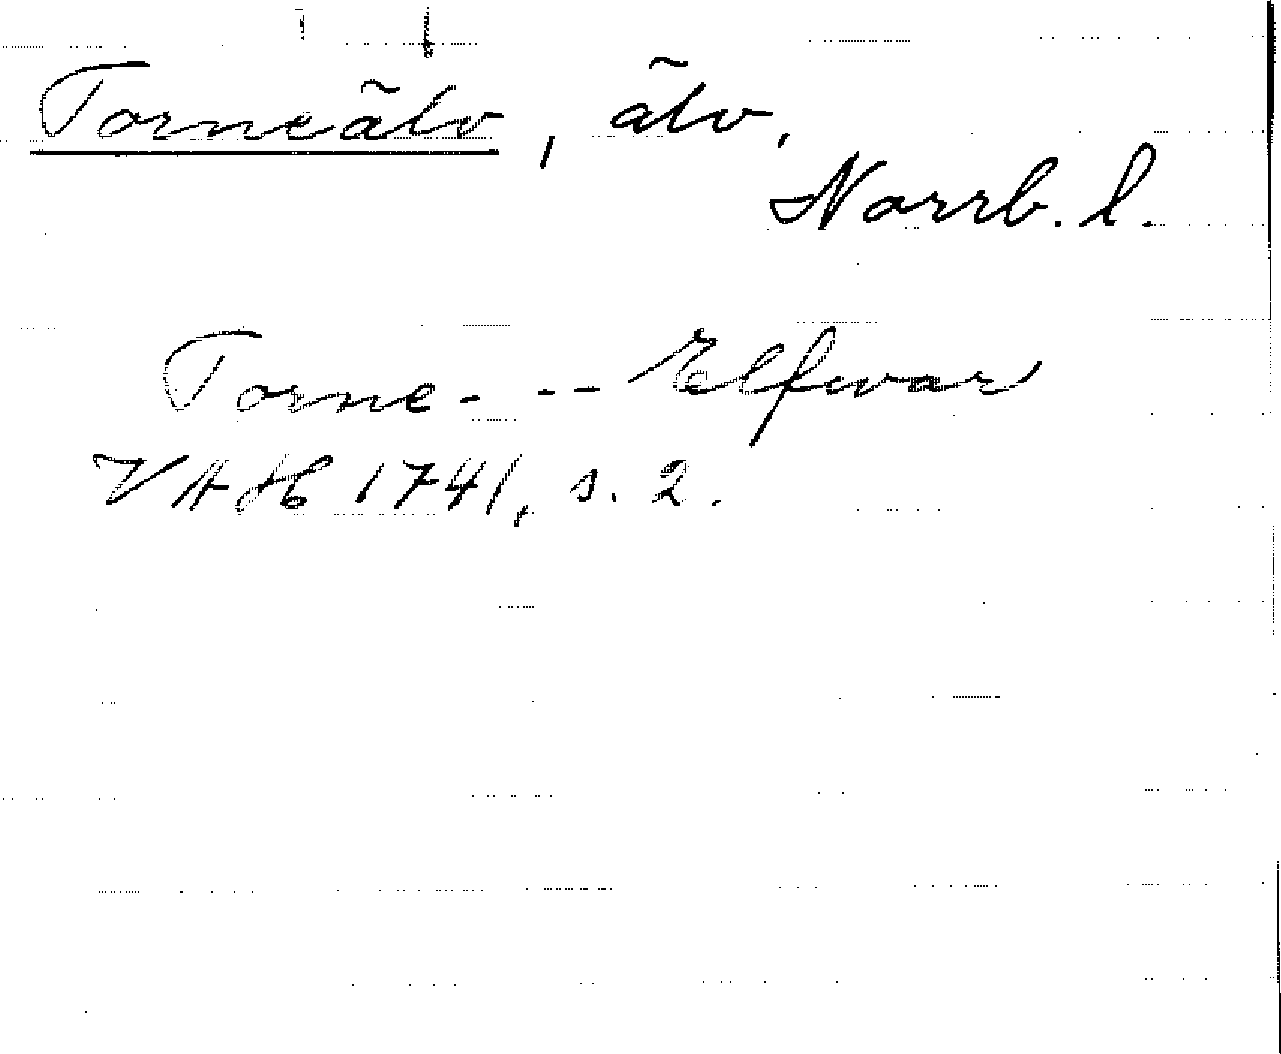 Torneälv, älv,
Norrb. l.
Torne- -- Elfwar
VAH 1741, s. 2.